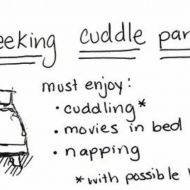 cuddle
must enjoy:
• cuddling*
• movies in bed
• napping
*with possible